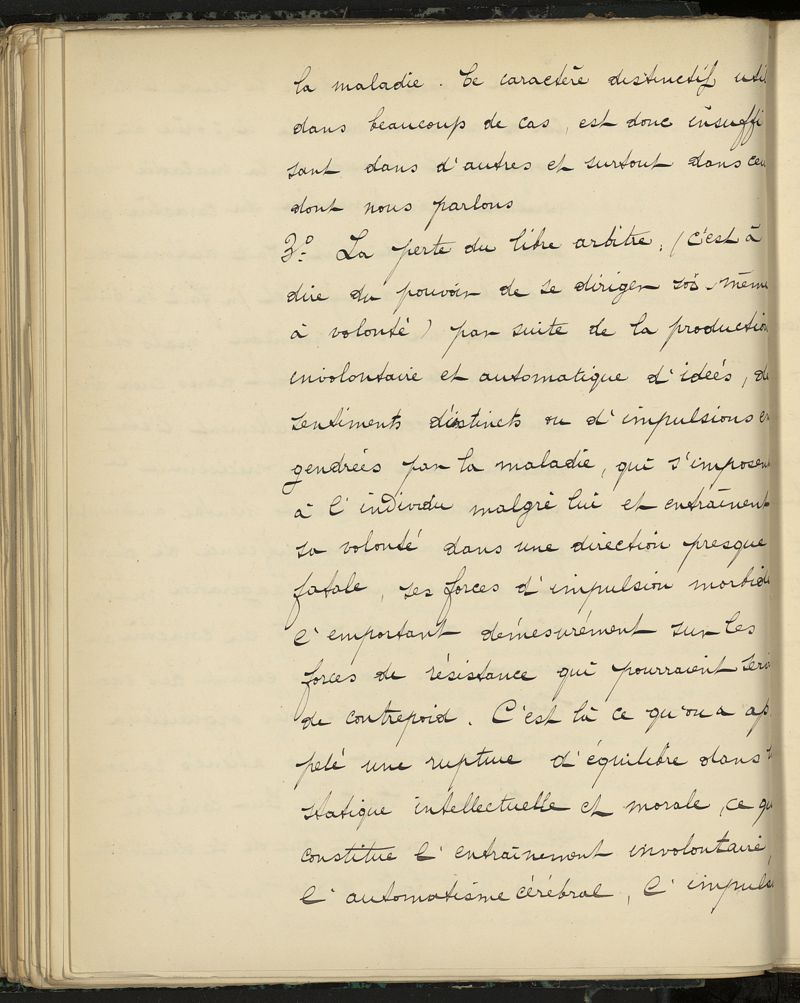 la maladie. Ce caractère distinctif util
dans beaucoup de cas, est donc insuffi
sant dans d'autres et surtout dans ceu
dont nous parlons
3º. La perte du libre arbitre, (c'est à
dire du pouvoir de se diriger soi-même
à volonté) par suite de la production
involontaire et automatique d'ideés, de
sentiments d'istincts ou d'impulsions en
gendrées par la maladie, qui s'imposent
à l'individu malgré lui et entraînent
sa volonté dans une direction presque
fatale, ses forces d'impulsion morbide
l'emportant démesurément sur les
forces de résistance qui pourraient servi
de contrepoid. C'est là ce qu'on a ap
pelé une rupture d'équilibre dans
statique intellectuelle et morale, ce qu
constitue l'entraînement involontaire,
l'automatisme cérébral, l'impuls